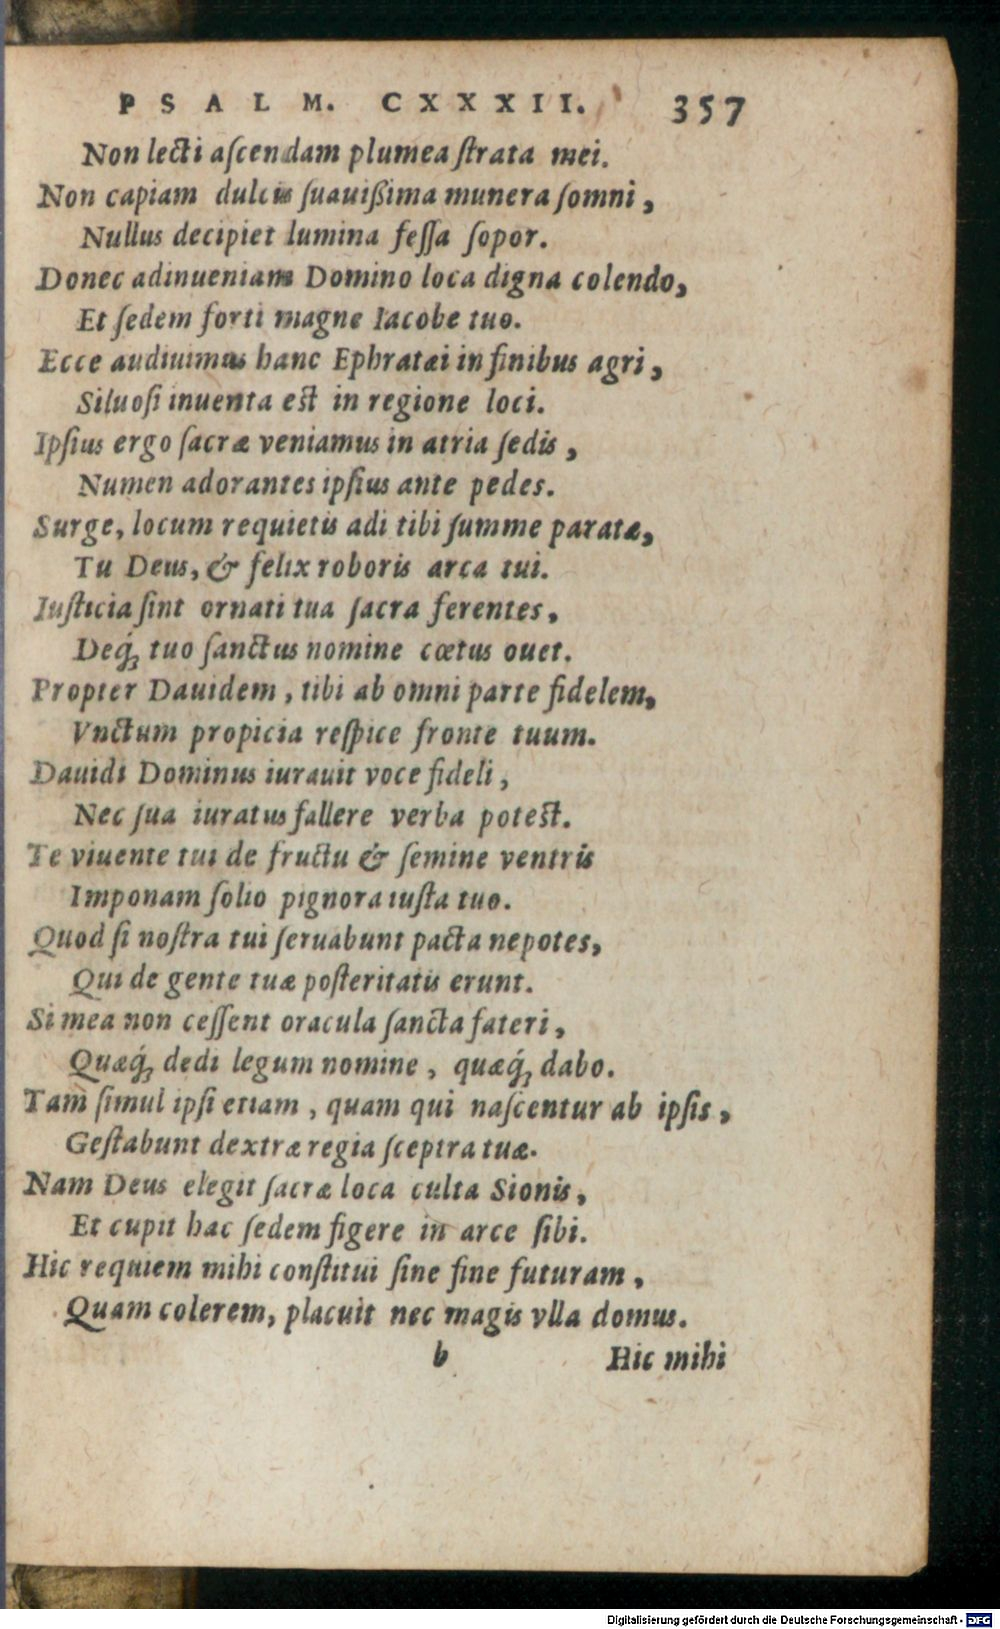 PSALM. CXXXII. 357
Non lecti aſcendam plumea ſtrata mei.
Non capiam dulcis ſuauißima munera ſomni,
Nullus decipiet lumina feſſa ſopor.
Donec adinueniam Domino loca digna colendo,
Et ſedem forti magne Iacobe tuo.
Ecce audiuimus hanc Ephratæi in finibus agri,
Siluoſi inuenta eſt in regione loci.
Ipſius ergo ſacræ veniamus in atria ſedis,
Numen adorantes ipſius ante pedes.
Surge, locum requietis adi tibi ſumme paratæ,
Tu Deus, & felix roboris arca tui.
Iuſticia ſint ornati tua ſacra ferentes,
Deq́ꝫ tuo ſanctus nomine cœtus ouet.
Propter Dauidem, tibi ab omni parte fidelem,
Vnctum propicia reſpice fronte tuum.
Dauidi Dominus iurauit voce fideli,
Nec ſua iuratus fallere verba poteſt.
Te viuente tui de fructu & ſemine ventris
Imponam ſolio pignora iuſta tuo.
Quod ſi noſtra tui ſeruabunt pacta nepotes,
Qui de gente tuæ poſteritatis erunt.
Si mea non ceſſent oracula ſancta fateri,
Quæq́ꝫ dedi legum nomine, quæq́ꝫ dabo.
Tam ſimul ipſi etiam, quam qui naſcentur ab ipſis,
Geſtabunt dextræ regia ſceptra tuæ.
Nam Deus elegit ſacræ loca culta Sionis,
Et cupit hac ſedem figere in arce ſibi.
Hic requiem mihi conſtitui ſine fine futuram,
Quam colerem, placuit nec magis vlla domus.
b Hic mihi
Digitalisierung gefördert durch die Deutsche Forschungsgemeinschaft - DFG